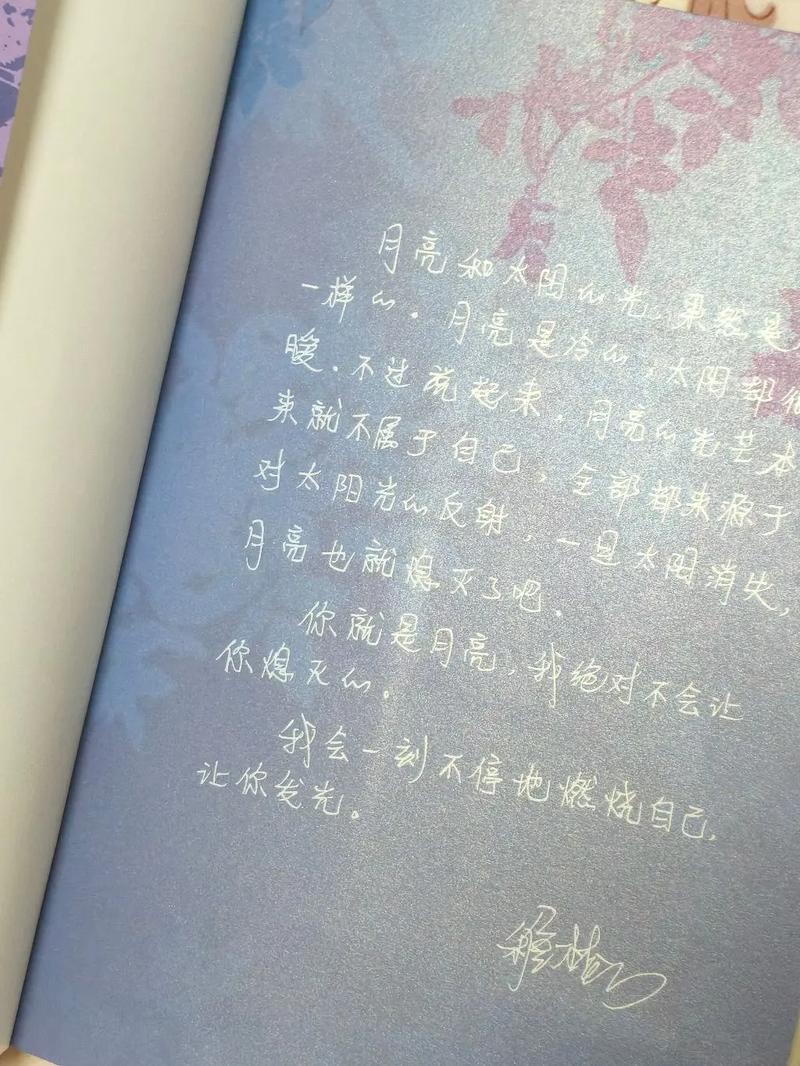 月亮和太阳的光,果然是
一样的。月亮是冷的,太阳却
暖.不过说起来,月亮的光芒本
来就不属于自己,全部都来源于
对太阳光的反射,一旦太阳消失,
月亮也就熄灭了吧.
你就是月亮,我绝对不会让
你熄灭的。
我会一刻不停地燃烧自己,
让你发光。